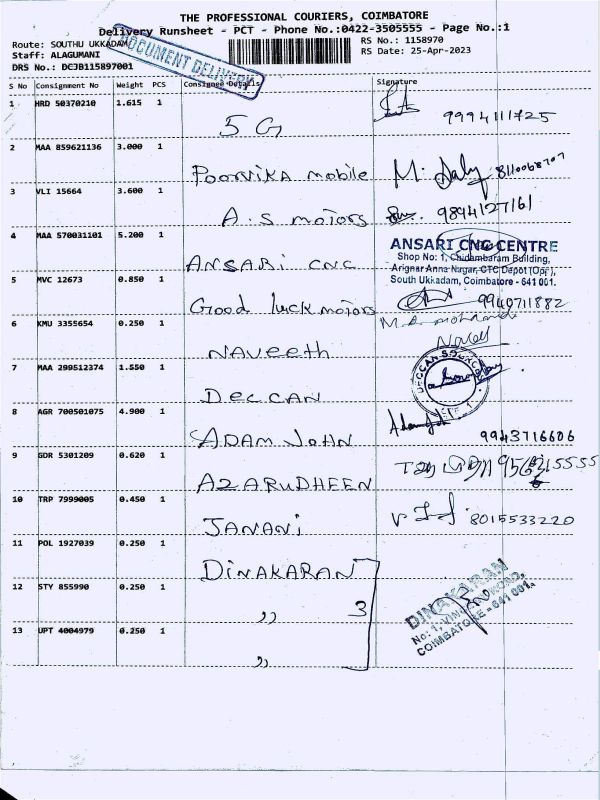 THE PROFESSIONAL COURIERS, COIMBATORE
Delivery Runsheet - PCT - Phone No.:0422-3505555 - Page No.:1
Route: SOUTHU UKKADAM
RS No.: 1158970
Staff: ALAGUMANI
RS Date: 25-Apr-2023
DRS No.: DCJB115897001
DOCUMENT DELIVERY
S No Consignment No Weight PCS Consignee Details Signature
1 HRD 50370210 1.615 1
5 G 9994111725
2 MAA 859621136 3.000 1
Poorvika mobile M. 8110068707
3 VLI 15664 3.600 1
A.S motors 9894127161
4 MAA 570031101 5.200 1
ANSARI CNC
ANSARI CNC CENTRE
Shop No: 1, Chidambaram Building,
Arignar Anna Nagar, CTC Depot (Opp),
South Ukkadam, Coimbatore - 641 001.
5 MVC 12673 0.850 1
Good luck motors 9940711882
6 KMU 3355654 0.250 1
NAVeeth
7 MAA 299512374 1.550 1
DeCCAN
8 AGR 700501075 4.900 1
ADAM JOHN 9943716606
9 GDR 5301209 0.620 1
AZARUDHEEN
10 TRP 7999005 0.450 1
JANANi 8015533220
11 POL 1927039 0.250 1
DiNAKARAN
12 STY 855990 0.250 1
,, 3
DINAKARAN
COIMBATORE - 641 001.
13 UPT 4004979 0.250 1
,,